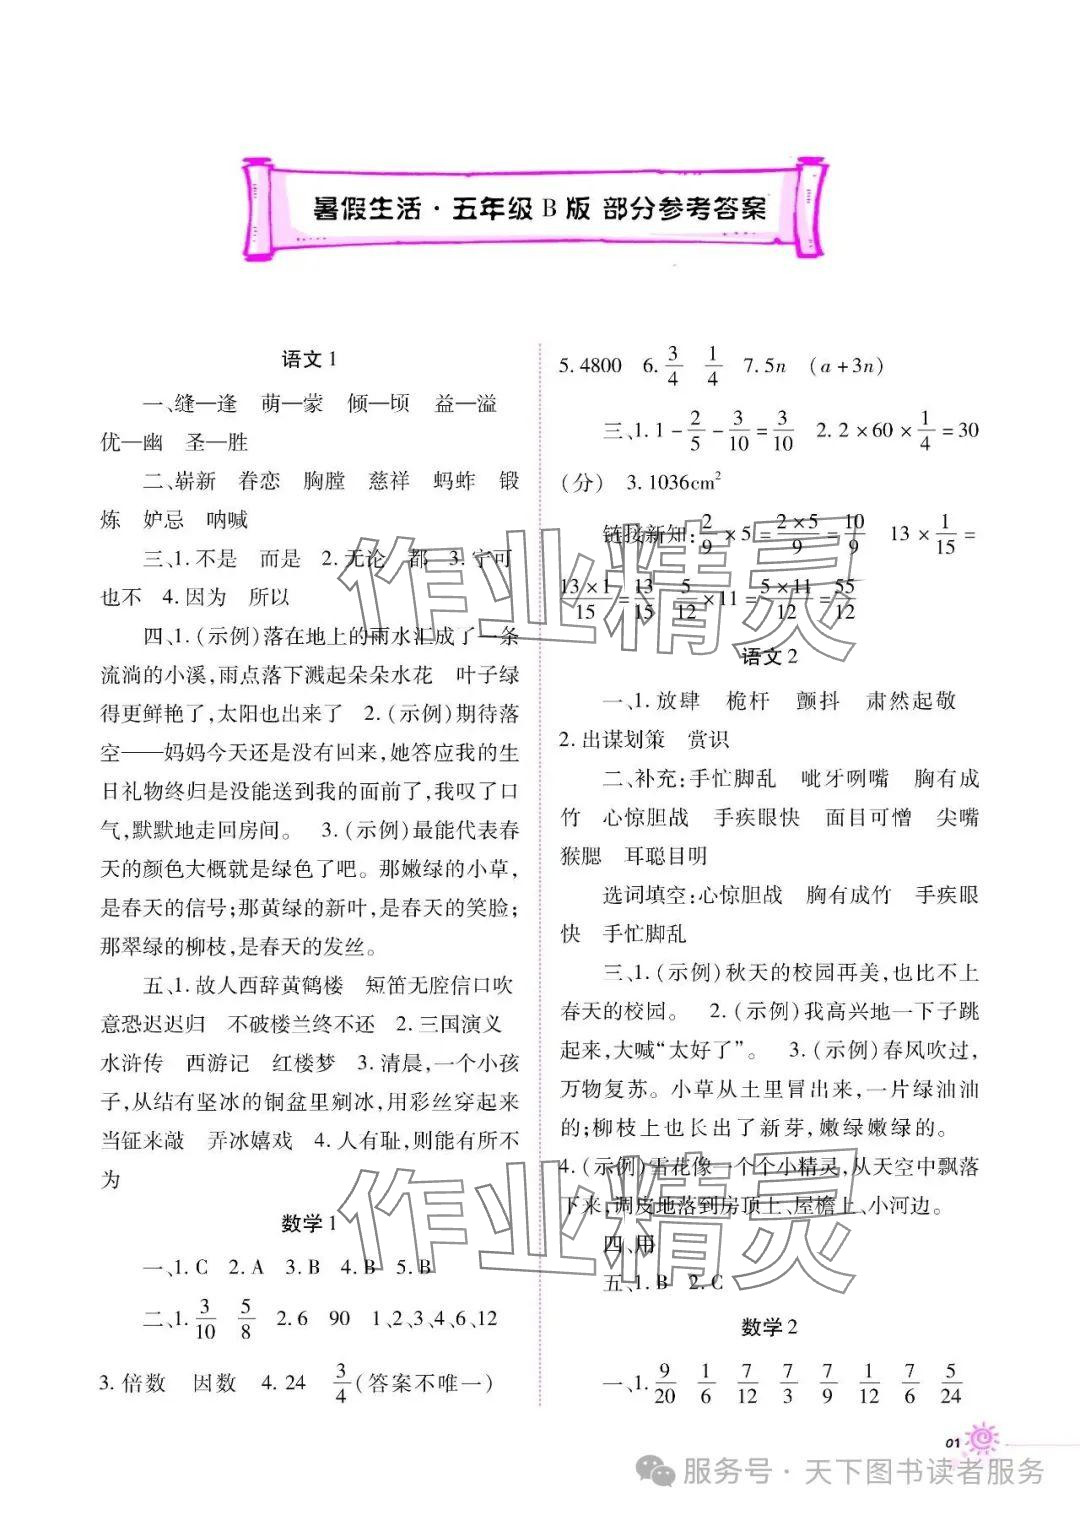 暑假生活·五年级 B 版 部分参考答案
语文 1
一、缝—逢 萌—蒙 倾—顷 益—溢
优—幽 圣—胜
二、崭新 眷恋 胸膛 慈祥 蚂蚱 锻
炼 妒忌 呐喊
三、1. 不是 而是 2. 无论 都 3. 宁可
也不 4. 因为 所以
四、1. (示例)落在地上的雨水汇成了一条
流淌的小溪,雨点落下溅起朵朵水花 叶子绿
得更鲜艳了,太阳也出来了 2. (示例)期待落
空——妈妈今天还是没有回来,她答应我的生
日礼物终归是没能送到我的面前了,我叹了口
气,默默地走回房间。 3. (示例)最能代表春
天的颜色大概就是绿色了吧。那嫩绿的小草,
是春天的信号;那黄绿的新叶,是春天的笑脸;
那翠绿的柳枝,是春天的发丝。
五、1. 故人西辞黄鹤楼 短笛无腔信口吹
意恐迟迟归 不破楼兰终不还 2. 三国演义
水浒传 西游记 红楼梦 3. 清晨,一个小孩
子,从结有坚冰的铜盆里剜冰,用彩丝穿起来
当钲来敲 弄冰嬉戏 4. 人有耻,则能有所不
为
数学 1
一、1. C 2. A 3. B 4. B 5. B
二、1. 3/10 5/8 2. 6 90 1、2、3、4、6、12
3. 倍数 因数 4. 24 3/4 (答案不唯一)
5. 4800 6. 3/4 1/4 7. 5n (a+3n)
三、1. 1-2/5-3/10=3/10 2. 2×60×1/4=30
(分) 3. 1036cm²
链接新知:2/9×5=2×5/9=10/9 13×1/15=
13×1/15=13/15 5/12×11=5×11/12=55/12
语文 2
一、1. 放肆 桅杆 颤抖 肃然起敬
2. 出谋划策 赏识
二、补充:手忙脚乱 呲牙咧嘴 胸有成
竹 心惊胆战 手疾眼快 面目可憎 尖嘴
猴腮 耳聪目明
选词填空:心惊胆战 胸有成竹 手疾眼
快 手忙脚乱
三、1. (示例)秋天的校园再美,也比不上
春天的校园。 2. (示例)我高兴地一下子跳
起来,大喊“太好了”。 3. (示例)春风吹过,
万物复苏。小草从土里冒出来,一片绿油油
的;柳枝上也长出了新芽,嫩绿嫩绿的。
4. (示例)雪花像一个个小精灵,从天空中飘落
下来,调皮地落到房顶上、屋檐上、小河边。
四、用
五、1. B 2. C
数学 2
一、1. 9/20 1/6 7/12 7/3 7/9 1/12 7/6 5/24
01
作业精灵
作业精灵
服务号·天下图书读者服务